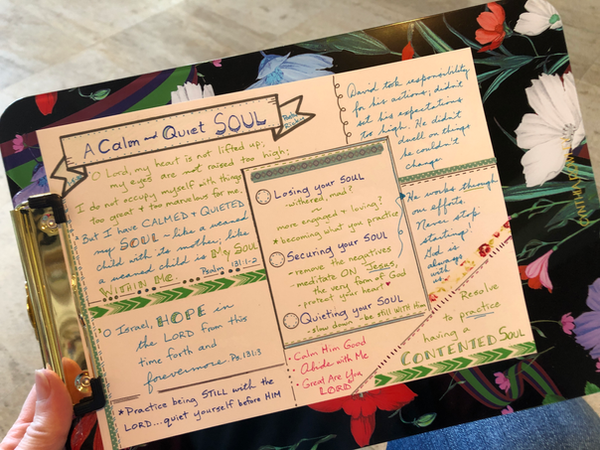 A Calm and Quiet SOUL
O Lord, my heart is not lifted up;
my eyes are not raised too high:
I do not occupy myself with things
too great & too marvelous for me.
But I have CALMED & QUIETED
my SOUL - like a weaned
child with its mother; like
a weaned child is My SOUL
WITHIN Me.
Psalm 131:1-2
O Israel, HOPE in
the LORD from this
time forth and
forevermore. Ps. 131:3
*Practice being STILL with the
LORD...quiet yourself before HIM
Losing your SOUL
-withered, mad?
more engaged & loving?
*becoming what you practice
Securing your SOUL
- remove the negatives
- meditate ON Jesus,
the very form of God
- protect your heart
Quieting your SOUL
- slow down - be still WITH Him
Calm Him Good
Abide with Me
Great Are You
LORD
David took responsibility
for his actions; didn't
set his expectations
too high. He didn't
dwell on things
he couldn't
change.
He works through
our efforts.
Never stop
starting!
God is
always
with
Resolve
to practice
having a
CONTENTED SOUL